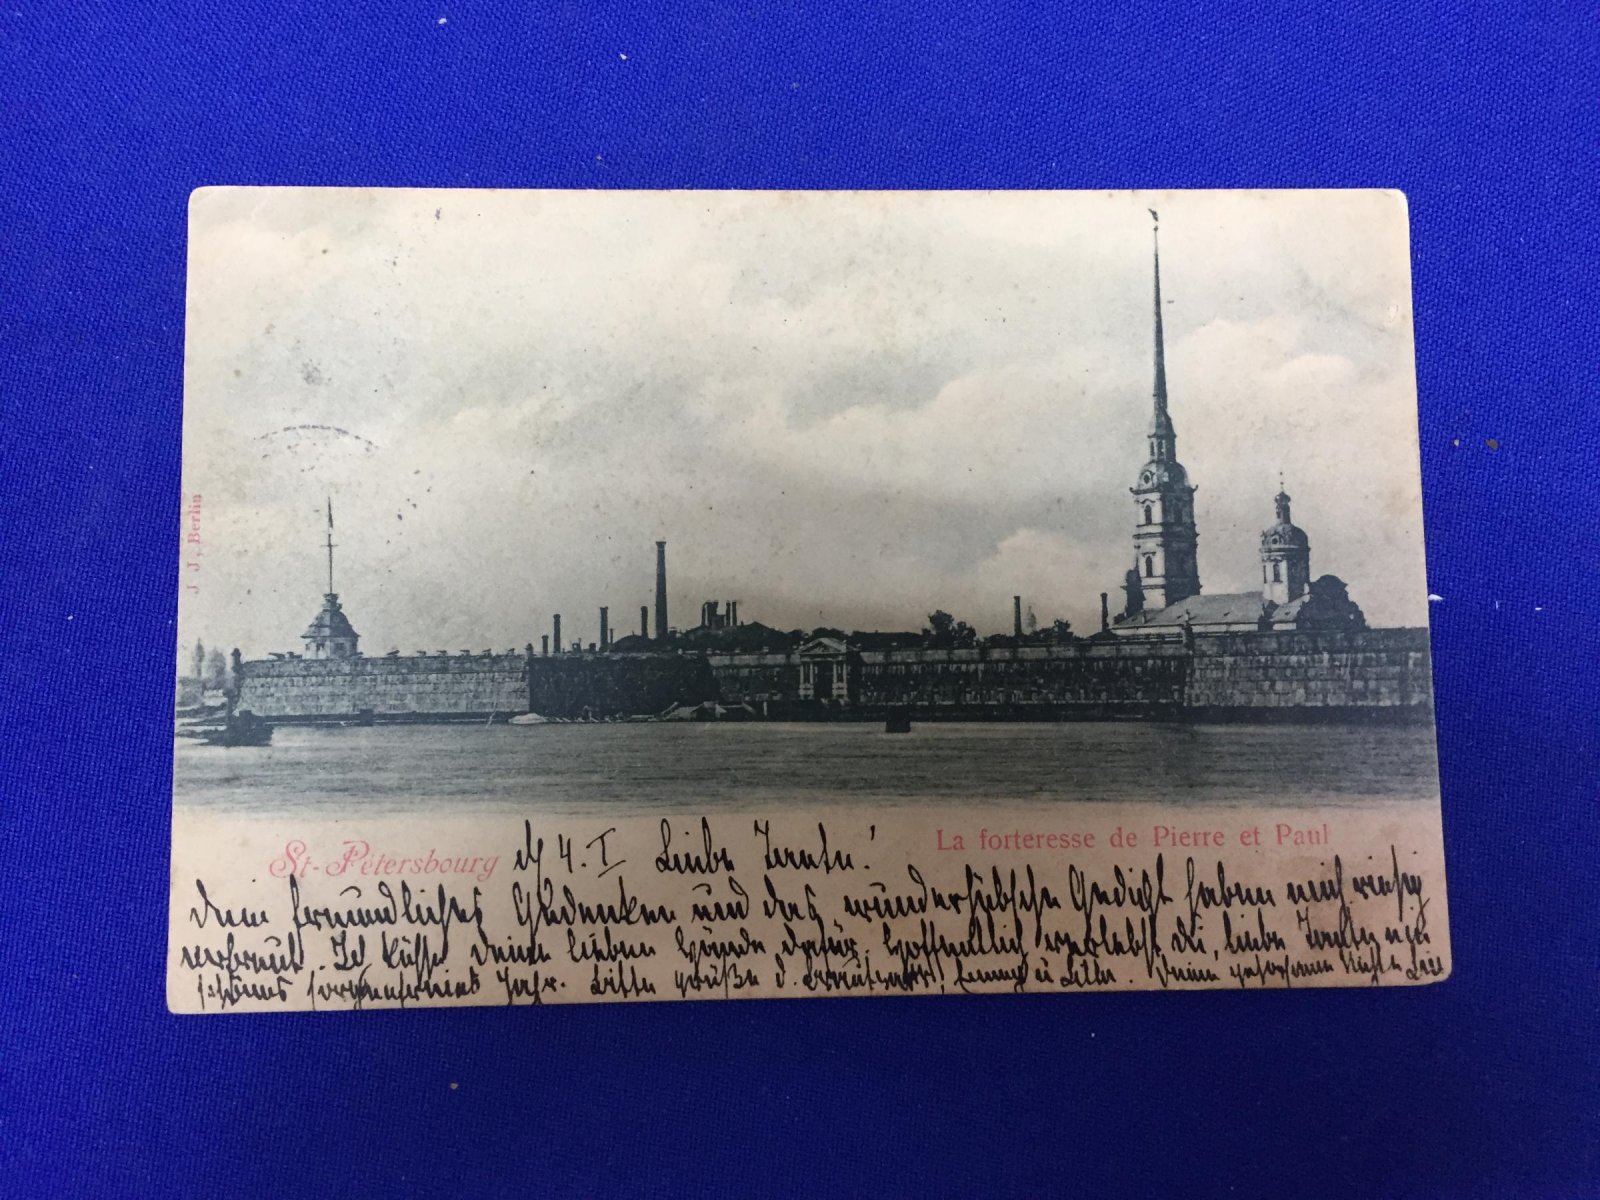 J J, Berlin
St-Pétersbourg
La forteresse de Pierre et Paul
d 4. I Liebe Tante!
Dein freundliches Gedenken und das wunderhübsche Gedicht haben mich riesig
erfreut. Ich küsse Deine lieben Hände dafür. Hoffentlich verlebst Du, liebe Tante ein
schönes sorgenfreies Jahr. Bitte grüße d. u Deine gehorsame Nichte